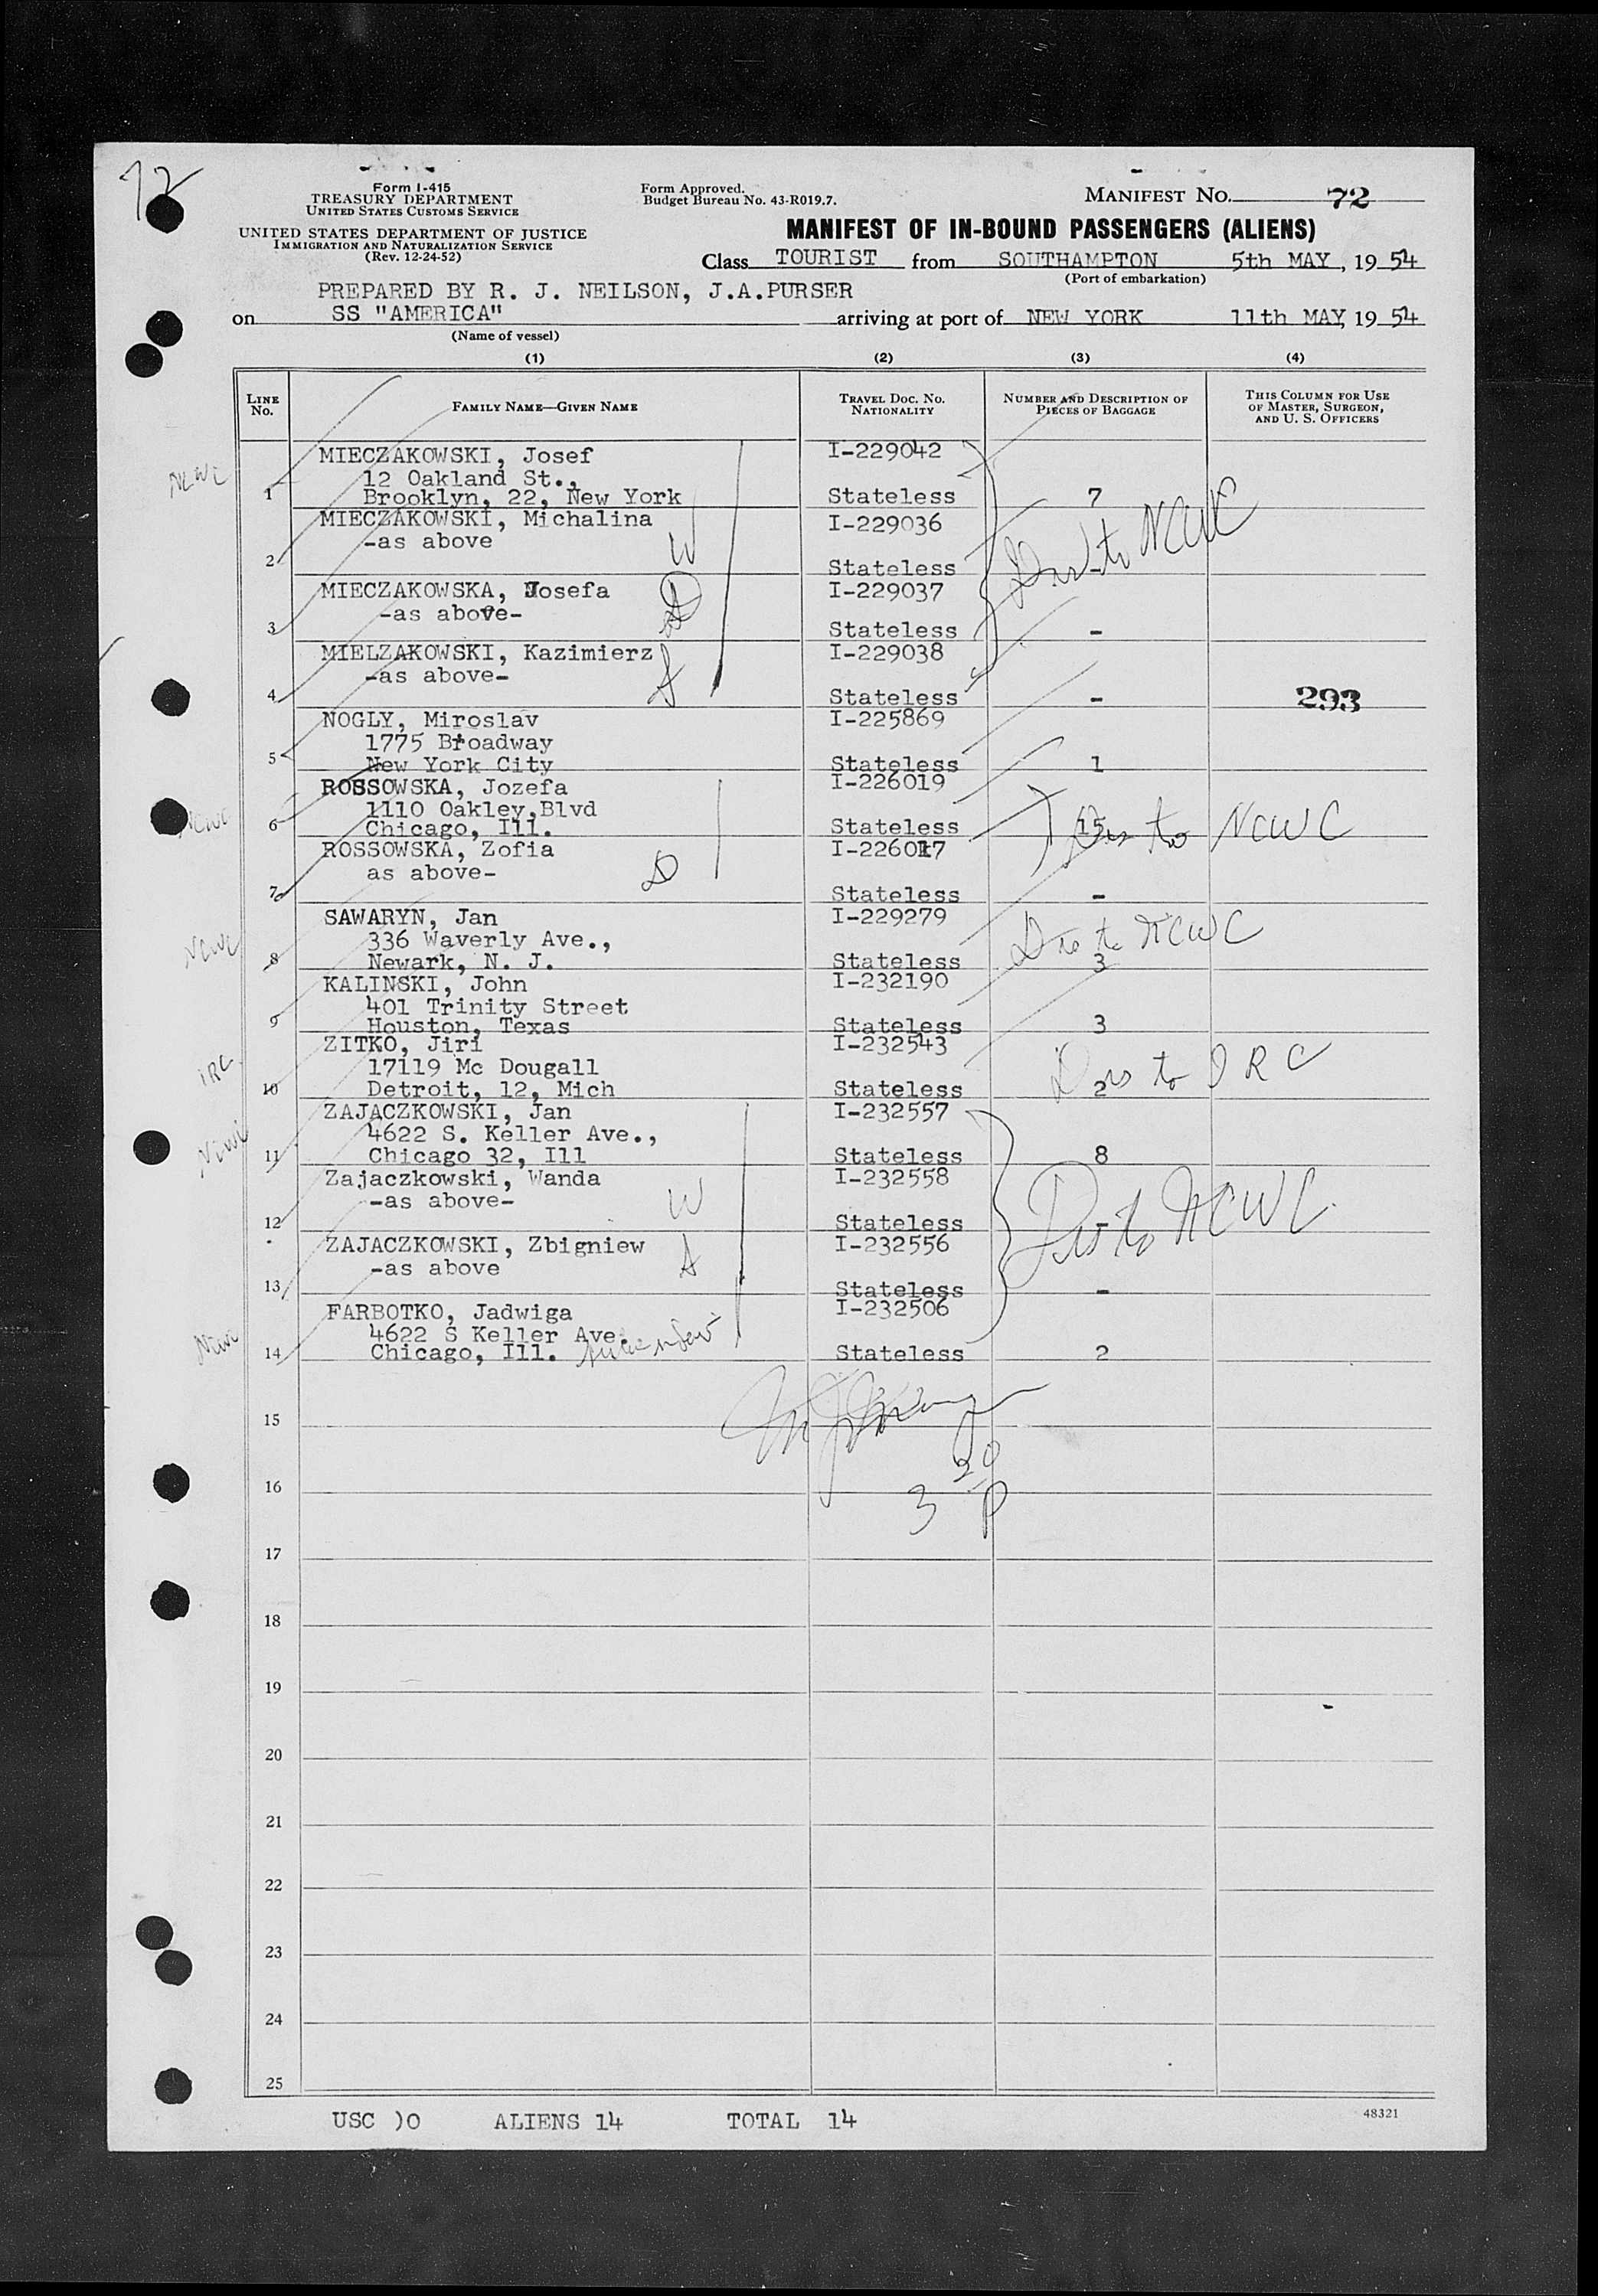 72
Form I-415
TREASURY DEPARTMENT
UNITED STATES CUSTOMS SERVICE
UNITED STATES DEPARTMENT OF JUSTICE
IMMIGRATION AND NATURALIZATION SERVICE
(Rev. 12-24-52)
Form Approved.
Budget Bureau No. 43-R019.7.
MANIFEST NO. 72
MANIFEST OF IN-BOUND PASSENGERS (ALIENS)
Class TOURIST from SOUTHAMPTON 5th MAY, 19 54
(Port of embarkation)
PREPARED BY R. J. NEILSON, J.A.PURSER
on SS "AMERICA" arriving at port of NEW YORK 11th MAY, 19 54
(Name of vessel)
(1) (2) (3) (4)
LINE No. FAMILY NAME—GIVEN NAME TRAVEL DOC. NO. NATIONALITY NUMBER AND DESCRIPTION OF PIECES OF BAGGAGE THIS COLUMN FOR USE OF MASTER, SURGEON, AND U. S. OFFICERS
MIECZAKOWSKI, Josef I-229042
12 Oakland St.,
NCWC 1 Brooklyn, 22, New York Stateless 7
MIECZAKOWSKI, Michalina I-229036
-as above W
2 Stateless - Dis to NCWC
MIECZAKOWSKA, Josefa D I-229037
-as above-
3 Stateless -
MIELZAKOWSKI, Kazimierz I-229038
-as above- S
4 Stateless - 293
NOGLY, Miroslav I-225869
1775 Broadway
5 New York City Stateless 1
ROSSOWSKA, Jozefa I-226019
1110 Oakley,Blvd
NCWC 6 Chicago, Ill. Stateless 15 Dis to NCWC
ROSSOWSKA, Zofia I-226017
as above- D
7 Stateless -
SAWARYN, Jan I-229279
336 Waverly Ave., Dis to NCWC
NCWC 8 Newark, N. J. Stateless 3
KALINSKI, John I-232190
401 Trinity Street
9 Houston, Texas Stateless 3
ZITKO, Jiri I-232543
17119 Mc Dougall
IRC 10 Detroit, 12, Mich Stateless 2 Dis to IRC
ZAJACZKOWSKI, Jan I-232557
4622 S. Keller Ave.,
NCWC 11 Chicago 32, Ill Stateless 8
Zajaczkowski, Wanda I-232558
-as above- W
12 Stateless - Dis to NCWC
ZAJACZKOWSKI, Zbigniew I-232556
-as above S
13 Stateless -
FARBOTKO, Jadwiga I-232506
4622 S Keller Ave.
NCWC 14 Chicago, Ill. Stateless 2
15
3 20 P
16
17
18
19
20
21
22
23
24
25
USC )0 ALIENS 14 TOTAL 14
48321